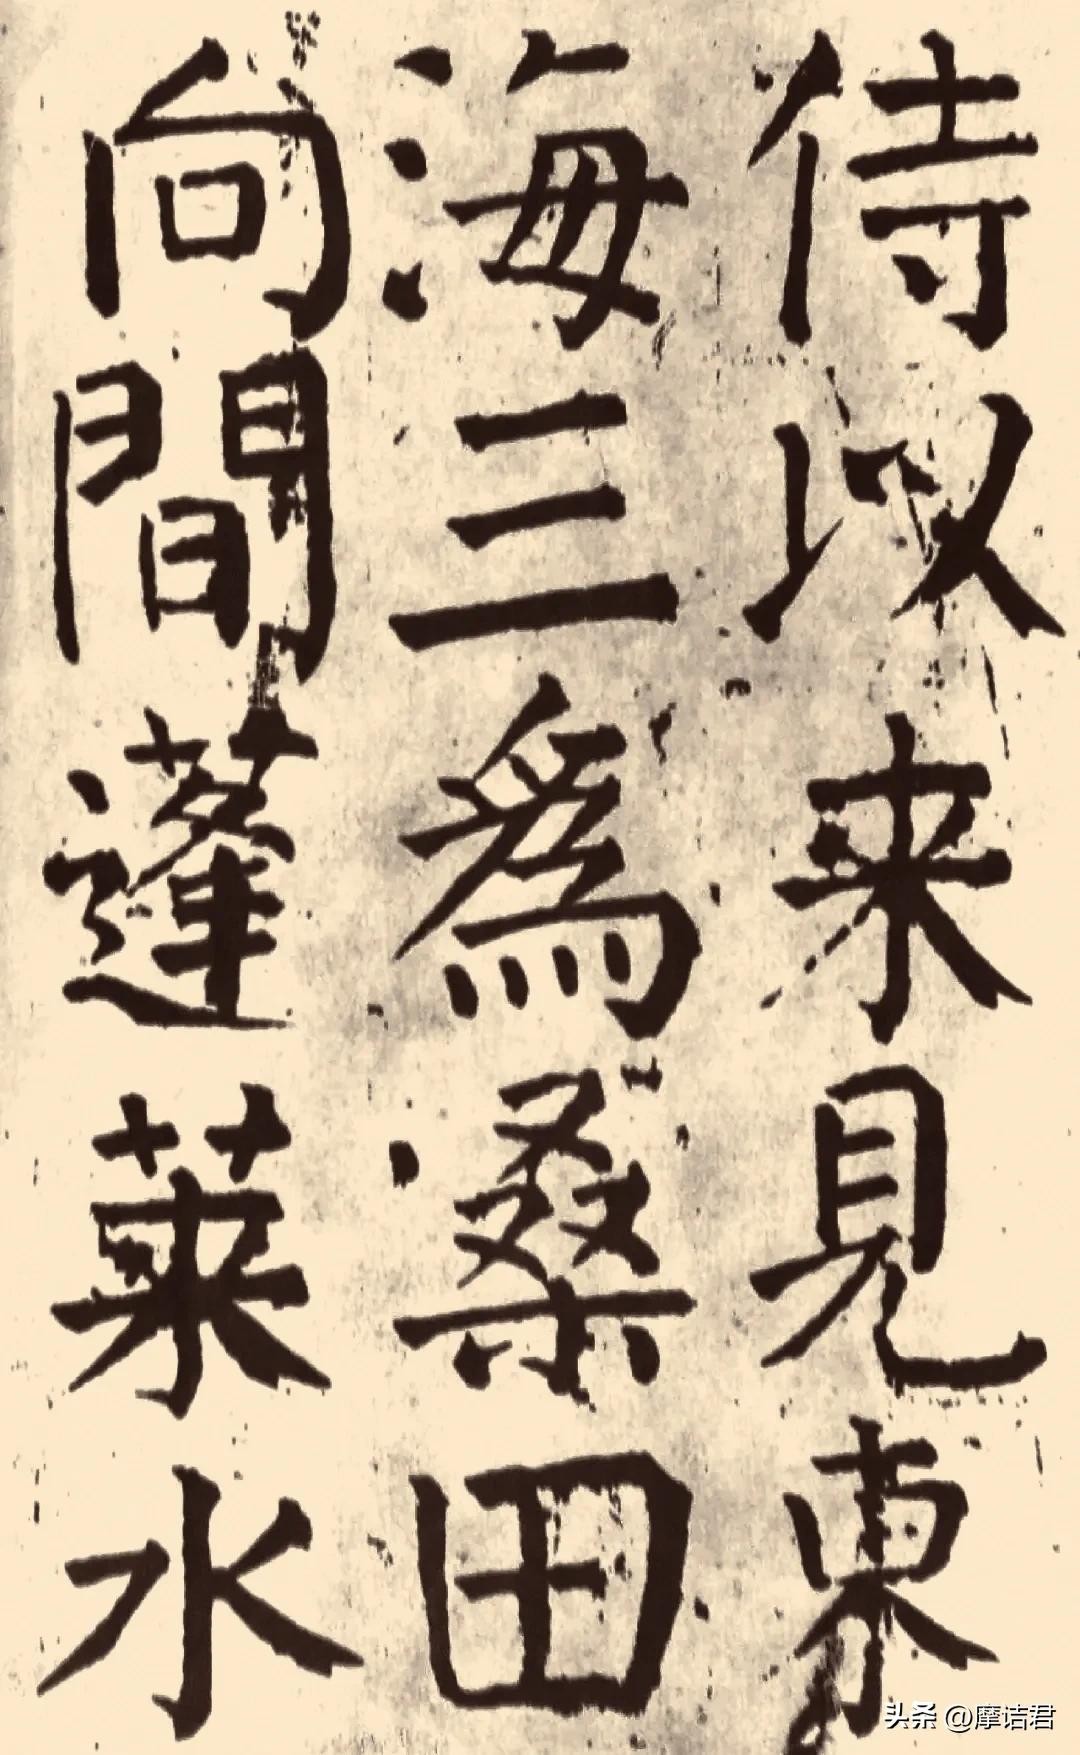 侍以来見東
海三為桑田
向間蓬莱水
头条 @摩诘君